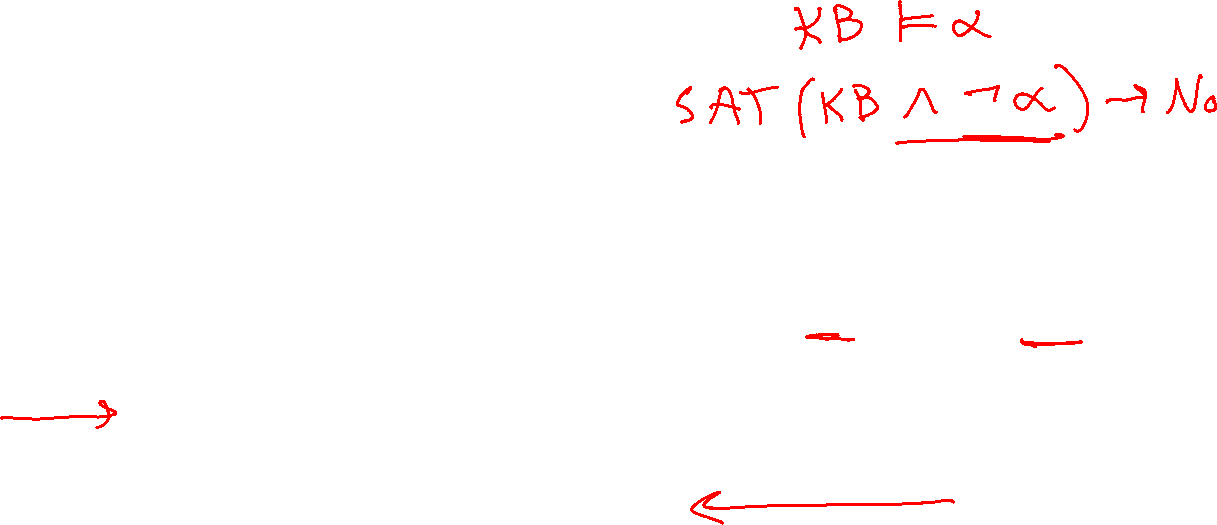 KB ⊨ α
SAT (KB ∧ ¬α) → No